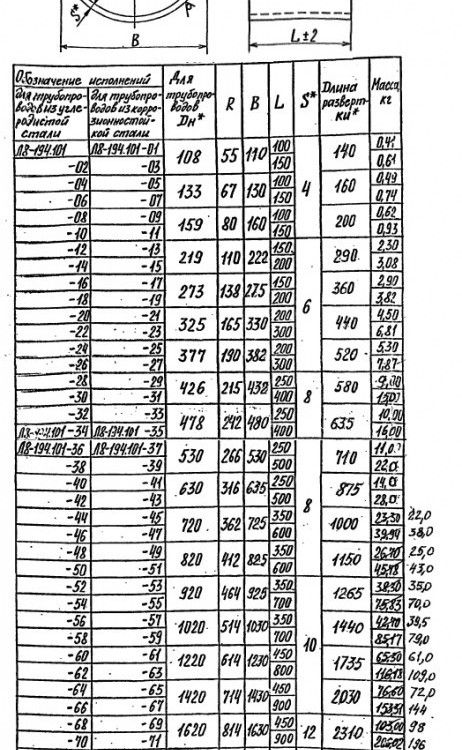 S*
B
L±2
Обозначение исполнений
для трубопроводов из углеродистой стали
для трубопроводов из коррозионностойкой стали
Для трубопроводов Dн*
R
B
L
S*
Длина развертки*
Масса, кг
Л8-194.101 Л8-194.101-01 108 55 110 100 4 140 0,41
-02 -03 150 0,61
-04 -05 133 67 130 100 160 0,49
-06 -07 150 0,74
-08 -09 159 80 160 100 200 0,62
-10 -11 150 0,93
-12 -13 219 110 222 150 6 290 2,30
-14 -15 200 3,08
-16 -17 273 138 275 150 360 2,90
-18 -19 200 3,82
-20 -21 325 165 330 200 440 4,50
-22 -23 300 6,81
-24 -25 377 190 382 200 520 5,30
-26 -27 300 7,87
-28 -29 426 215 432 250 8 580 9,00
-30 -31 400
-32 -33 478 242 480 250 635 10,00
Л8-194.101-34 Л8-194.101-35 400 16,00
Л8-194.101-36 Л8-194.101-37 530 266 530 250 8 710 11,0
-38 -39 500 22,0
-40 -41 630 316 635 250 875 14,0
-42 -43 500 28,0
-44 -45 720 362 725 350 1000 23,30 22,0
-46 -47 600 39,94 38,0
-48 -49 820 412 825 350 1150 25,0
-50 -51 600 43,0
-52 -53 920 464 925 350 10 1265 35,0
-54 -55 700 70,0
-56 -57 1020 514 1030 350 1440 39,5
-58 -59 700 85,17 79,0
-60 -61 1220 614 1230 450 1735 65,50 61,0
-62 -63 800 109,0
-64 -65 1420 714 1430 450 2030 76,60 72,0
-66 -67 900 144
-68 -69 1620 814 1630 450 12 2310 98
-70 -71 900 196